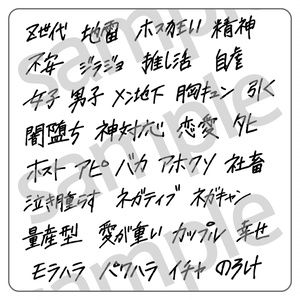 Z世代 地雷 ホス狂い 精神
不安 ジラジョ 推し活 自虐
女子 男子 メン地下 胸キュン 引く
闇堕ち 神対応 恋愛 タヒ
ホスト アピ バカ アホクソ 社畜
泣き腫らす ネガティブ ネガキャン
量産型 愛が重い カップル 幸せ
モラハラ パワハラ イチャ のろけ
sample
sample
sample